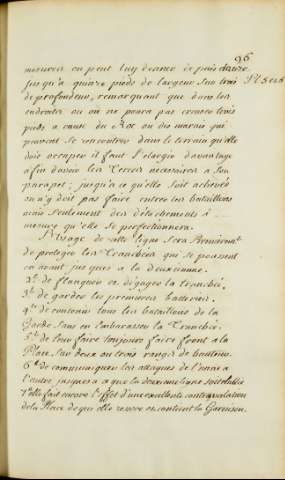 96
mesures on peut luy donner depuis douze
Pl. 5 et 6
jusqu'a quinze pieds de largeur sur trois
de profondeur, remarquant que dans les
endroits ou on ne poura pas creuser trois
pieds a cause du Roc ou des marais qui
peuvent se rencontrer dans le terrain qu'elle
doit occuper il faut l'elargir davantage
afin d'avoir les Terres necessaires a son
parapet; jusqu'a ce qu'elle soit achevée
on n'y doit pas faire entrer les bataillons
mais seulement des détachements à
mesure qu'elle se perfectionnera.
L'Usage de cette ligne sera Premieremt
de proteger les Tranchées qui se poussent
en avant jusques a la deuxieme.
2.t de flanquer et dégager la tranchée.
3.t de garder les premieres batteries.
4.t de contenir tous les bataillons de la
Garde sans en embarasser la Tranchée.
5.t de leur faire toujours faire front a la
Place sur deux ou trois rangs de hauteur.
6.t de communiquer les attaques de l'une a
l'autre jusques a ce que la deuxieme ligne soit établie
7.t elle fait encore l'effet d'une excellente contrevalation
de la Place de qui elle resserre et contient la Garnison.